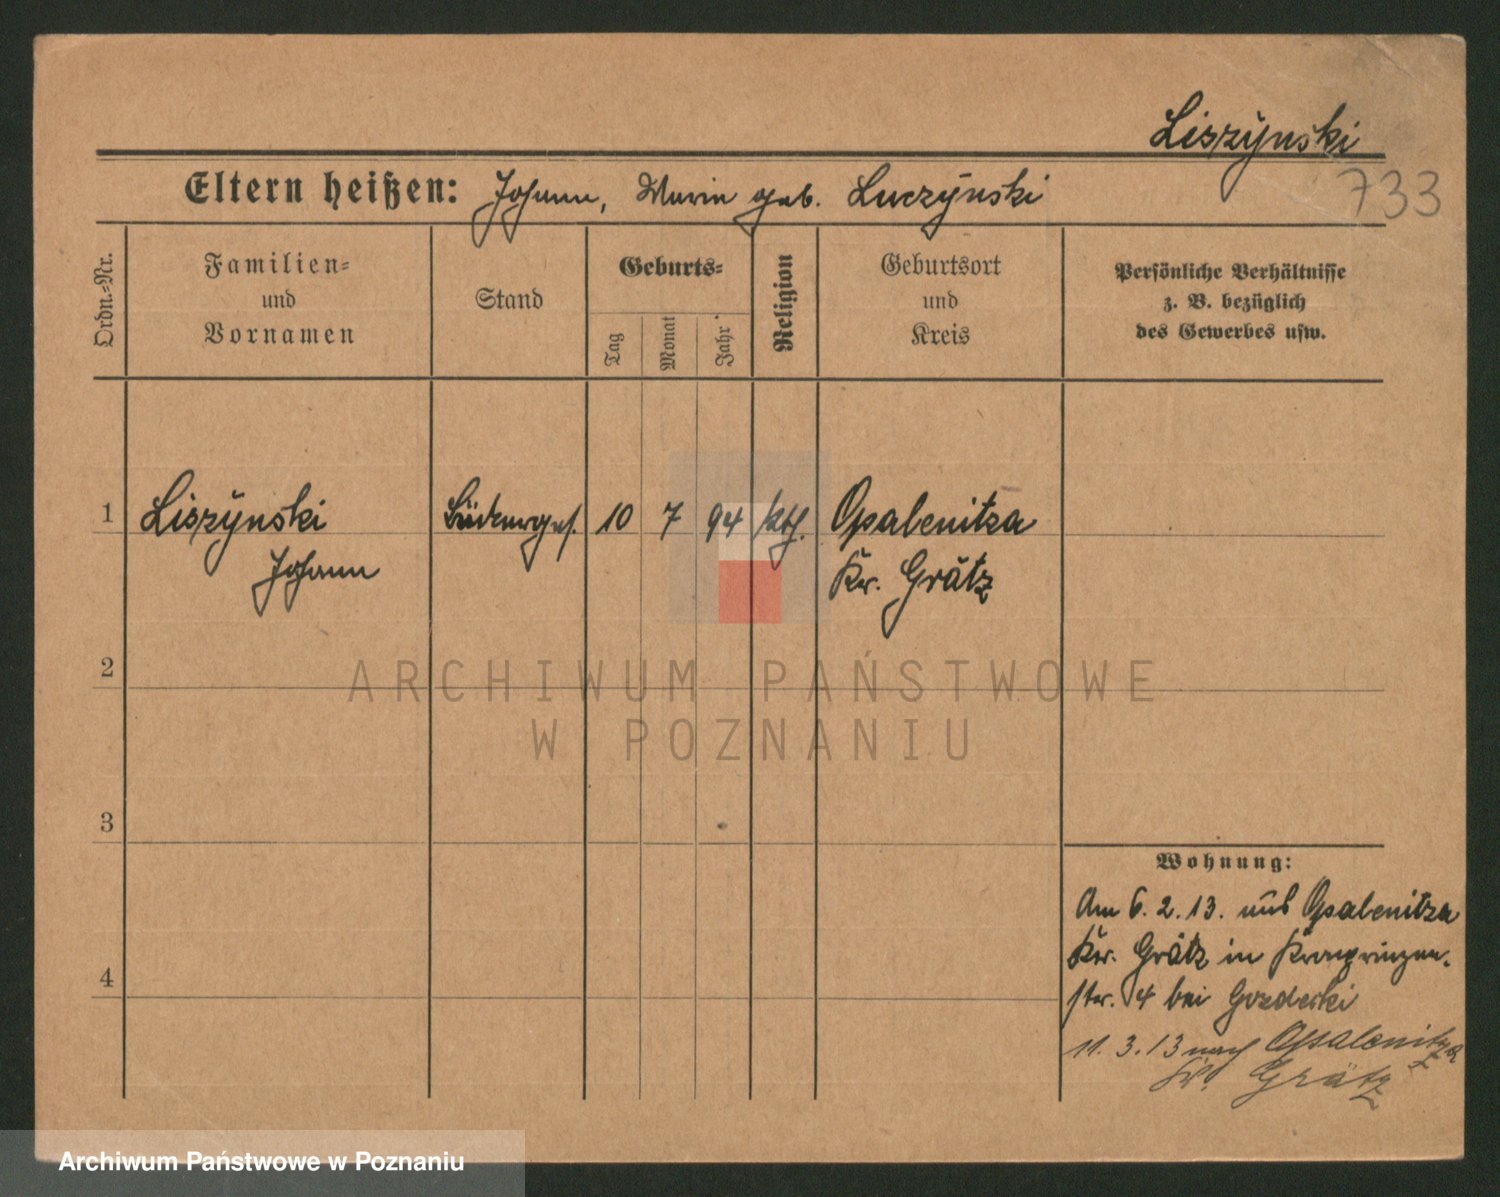 Liszynski
733
Eltern heißen: Johann, Maria geb. Luczynski
Ordn.-Nr.
Familien-
und
Vornamen
Stand
Geburts-
Tag
Monat
Jahr
Religion
Geburtsort
und
Kreis
Persönliche Verhältnisse
z. B. bezüglich
des Gewerbes usw.
1 Liszynski 10 7 94 kth. Opalenitza
Johann Kr. Grätz
2
ARCHIWUM PAŃSTWOWE
W POZNANIU
3
Wohnung:
Am 6. 2. 13. aus Opalenitza
Kr. Grätz in Kronprinzen-
4
str. 4 bei Gozdecki
11. 3. 13 nach Opalenitza
Kr. Grätz
Archiwum Państwowe w Poznaniu